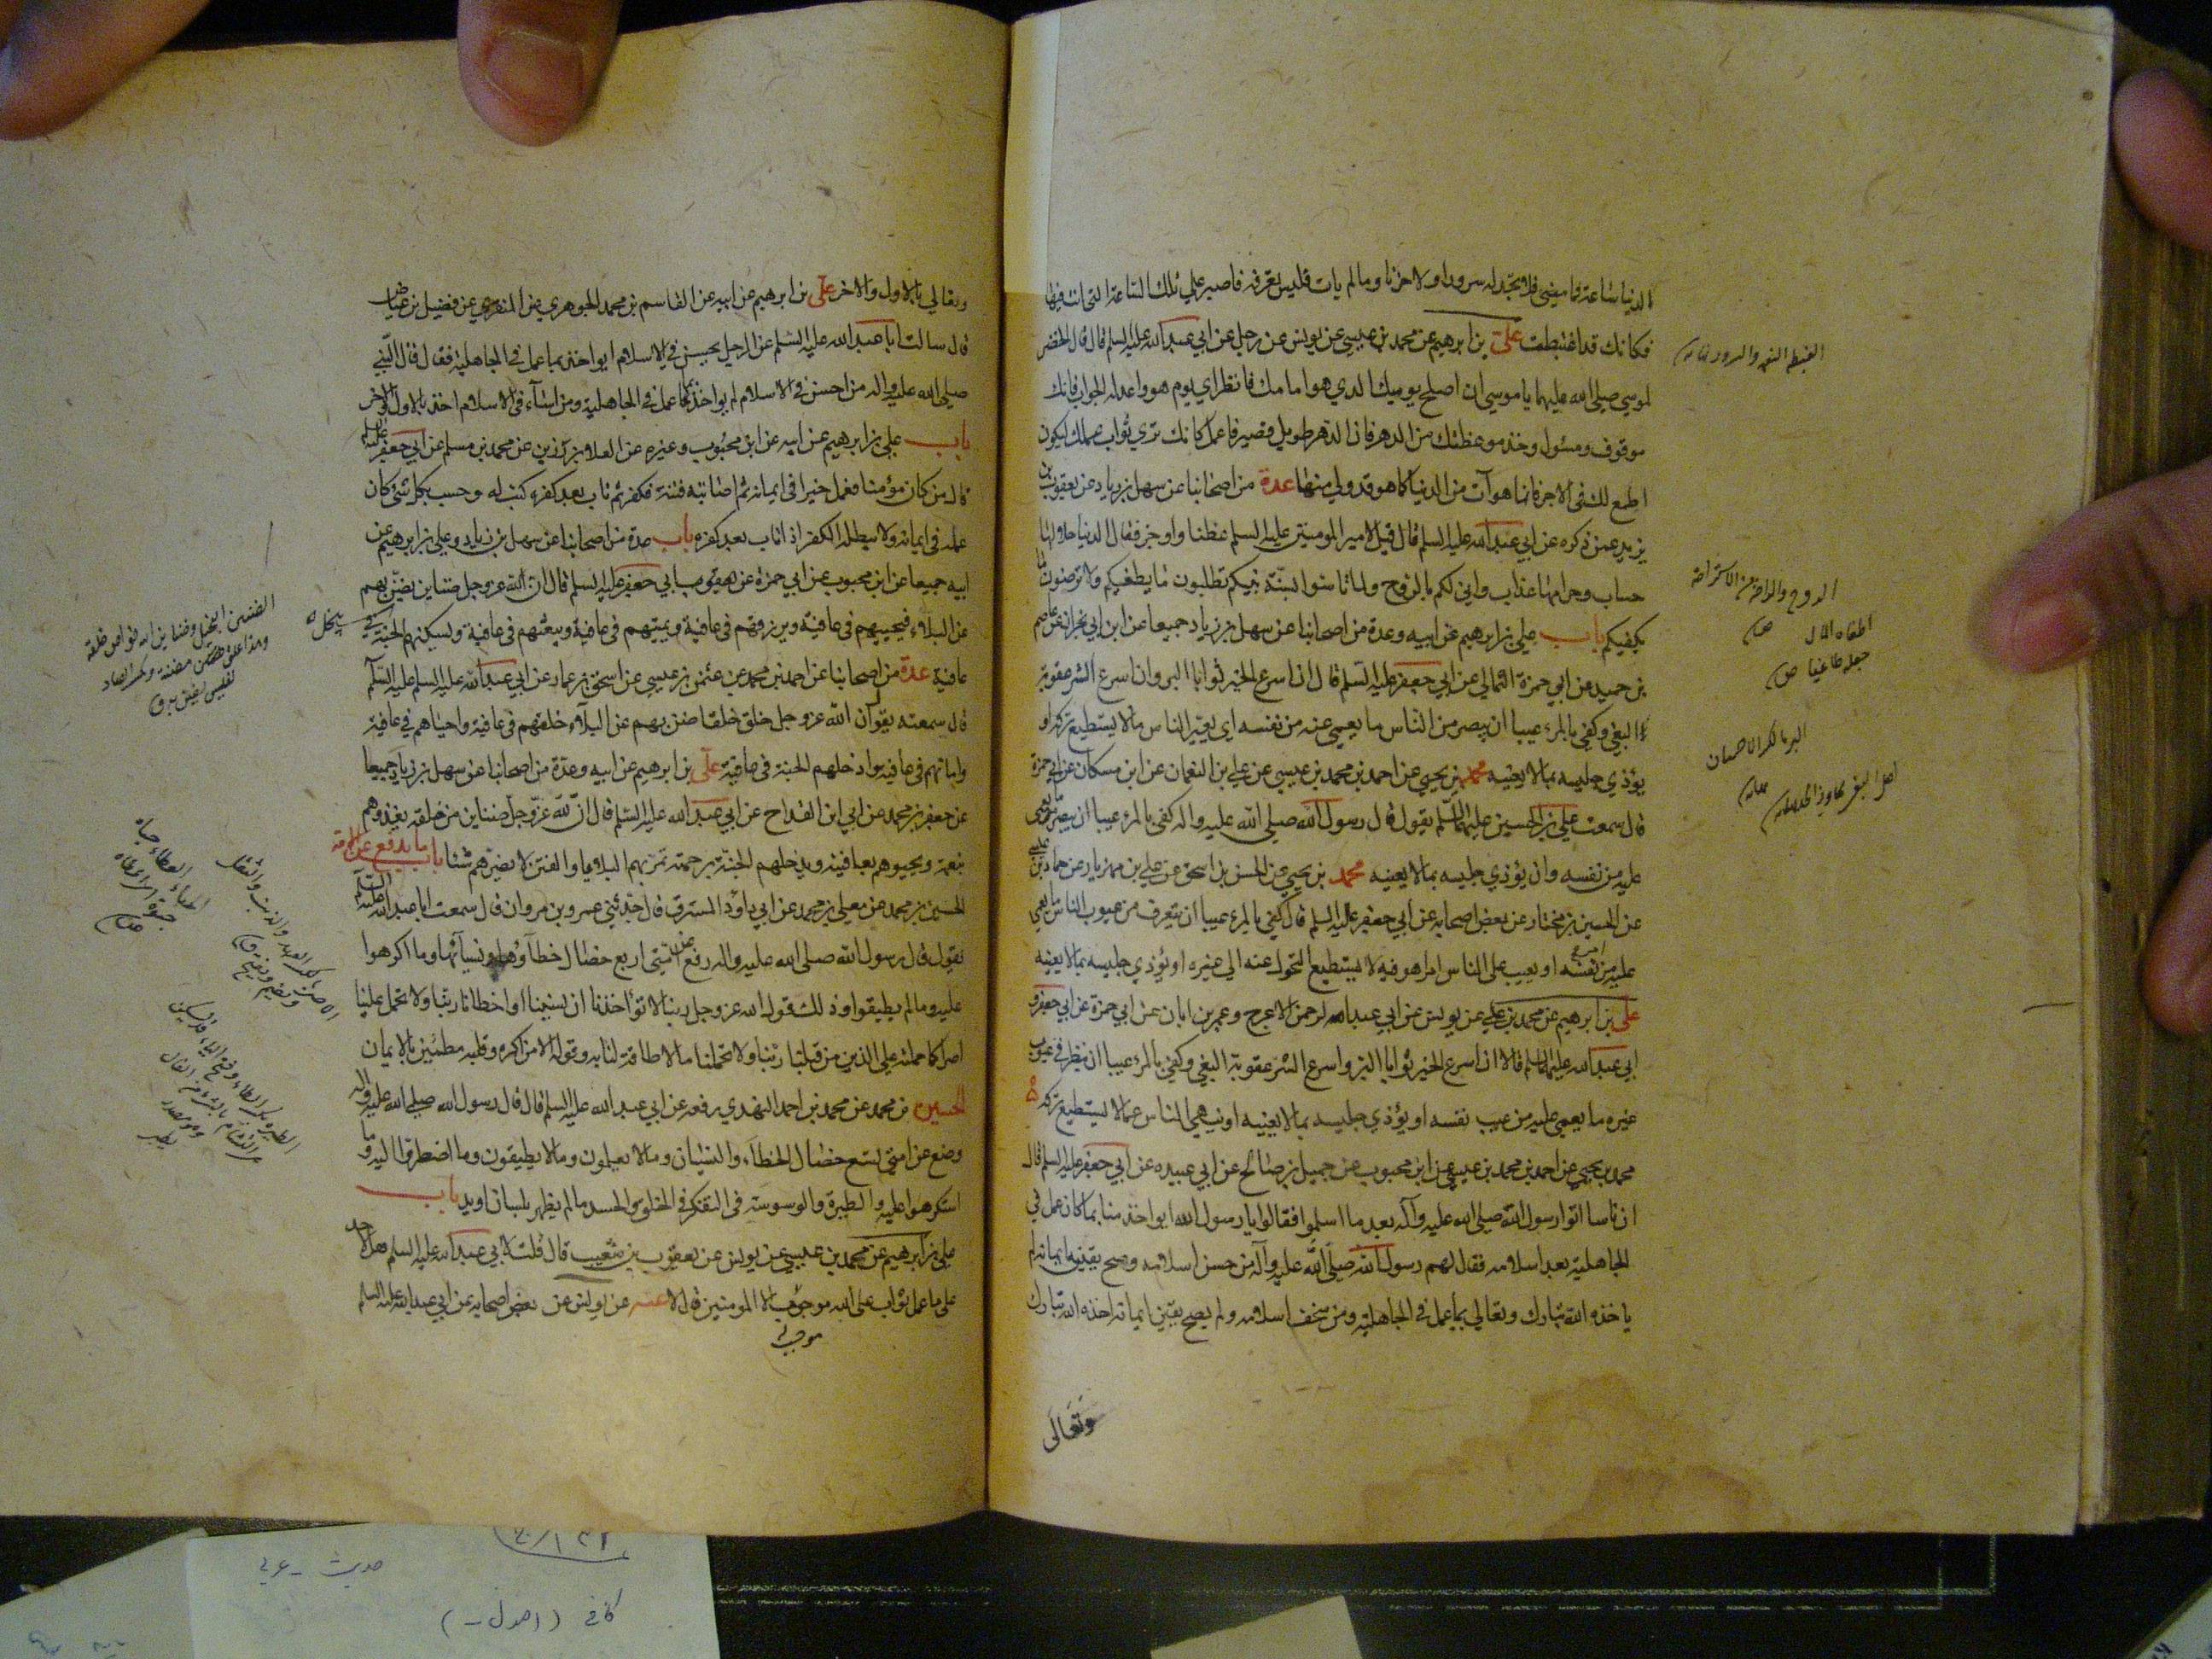 الدنيا ساعة فما مضى فلا تجد له سرورا ولا حزنا وما لم يات فليس تعرفه فاصبر على تلك الساعة التى انت فيها
فكانك قد اغتبطت على بن ابرهيم عن محمد بن عيسى عن يونس عن رجل عن ابي عبد الله عليه السلم قال قال الخضر
لموسى صلى الله عليهما يا موسى ان اصلح يوميك الذي هو امامك فانظر اي يوم هو واعد له الجواب فانك
موقوف ومسئول وخذ موعظتك من الدهر فان الدهر طويل وقصير فاعمل كانك ترى ثواب عملك ليكون
اطمع لك فى الاجر فانما هو آت من الدنيا كما هو قد ولى منها عدة من اصحابنا عن سهل بن زياد عن يعقوب بن
يزيد عمن ذكره عن ابي عبد الله عليه السلم قال قيل لامير المومنين عليه السلم عظنا واوجز فقال الدنيا حلالها
حساب وحرامها عذاب وانى لكم بالروح ولما تاسوا بسنة نبيكم تطلبون ما يطغيكم ولا ترضون ما
يكفيكم باب على بن ابرهيم عن ابيه وعدة من اصحابنا عن سهل بن زياد جميعا عن ابن ابي نجران عن عاصم
بن حميد عن ابي حمزة الثمالي عن ابي جعفر عليه السلم قال ان اسرع الخير ثوابا البر وان اسرع الشر عقوبة
البغي وكفى بالمرء عيبا ان يبصر من الناس ما يعمى عنه من نفسه اى يعير الناس ما لا يستطيع تركه او
يؤذي جليسه بما لا يعنيه محمد بن يحيى عن احمد بن محمد بن عيسى عن على بن النعمان عن ابن مسكان عن ابي حمزة
قال سمعت على بن الحسين عليهما السلم يقول قال رسول الله صلى الله عليه واله كفى بالمرء عيبا ان يبصر من الناس ما يعمى
عليه من نفسه وان يؤذي جليسه بما لا يعنيه محمد بن يحيى عن الحسن بن اسحق عن على بن مهزيار عن حماد بن عيسى
عن الحسين بن مختار عن بعض اصحابه عن ابي جعفر عليه السلم قال كفى بالمرء عيبا ان يتعرف من عيوب الناس ما يعمى
عليه من امر نفسه او يعيب على الناس امرا هو فيه لا يستطيع التحول عنه الى غيره او يؤذي جليسه بما لا يعنيه
على بن ابرهيم عن محمد بن عيسى عن يونس عن ابي عبد الرحمن الاعرج وعمر بن ابان عن ابي حمزة عن ابي جعفر و
ابي عبد الله عليهما السلم قالا ان اسرع الخير ثوابا البر واسرع الشر عقوبة البغي وكفى بالمرء عيبا ان ينظر فى عيوب
غيره ما يعمى عليه من عيب نفسه او يؤذي جليسه بما لا يعنيه او ينهى الناس عما لا يستطيع تركه
محمد بن يحيى عن احمد بن محمد بن عيسى عن ابن محبوب عن جميل بن صالح عن ابي عبيده عن ابي جعفر عليه السلم قال
ان ناسا اتوا رسول الله صلى الله عليه وآله بعد ما اسلموا فقالوا يا رسول الله ايواخذ منا بما كان عمل فى
الجاهلية بعد اسلامه فقال لهم رسول الله صلى الله عليه وآله من حسن اسلامه وصح يقين ايمانه لم
ياخذه الله تبارك وتعالى بما عمل فى الجاهلية ومن سخف اسلامه ولم يصح يقين ايمانه اخذه الله تبارك
وتعالى
الروح والراحة من الاستراحة
اطغاه المال
جعله طاغيا
البر بالكسر الاحسان
وتعالى بالاول والاخر على بن ابرهيم عن ابيه عن القاسم بن محمد الجوهري عن المنقري عن فضيل بن عياض
قال سالت ابا عبد الله عليه السلم عن الرجل يحسن فى الاسلام ايواخذ بما عمل فى الجاهلية فقال قال النبي
صلى الله عليه واله من احسن فى الاسلام لم يواخذ بما عمل فى الجاهلية ومن اسآء فى الاسلام اخذ بالاول والاخر
باب على بن ابرهيم عن ابيه عن ابن محبوب وغيره عن العلا بن رزين عن محمد بن مسلم عن ابي جعفر عليه السلم
قال من كان مؤمنا فعمل خيرا فى ايمانه ثم اصابته فتنة فكفر ثم تاب بعد كفره كتب له وحسب بكل شئ كان
عمله فى ايمانه ولا يبطله الكفر اذا تاب بعد كفره باب عدة من اصحابنا عن سهل بن زياد وعلى بن ابرهيم عن
ابيه جميعا عن ابن محبوب عن ابي حمزة عن ابي جعفر عليه السلم قال ان الله عز وجل ضنائن يضن بهم
عن البلاء فيحييهم فى عافية ويرزقهم فى عافية ويميتهم فى عافية ويبعثهم فى عافية ويسكنهم الجنة فى
عافية عدة من اصحابنا عن احمد بن محمد عن عثمن بن عيسى عن اسحق بن عمار عن ابي عبد الله عليه السلم
قال سمعته يقول ان الله عز وجل خلق خلقا ضن بهم عن البلآء خلقهم فى عافية واحياهم فى عافية
واماتهم فى عافية وادخلهم الجنة فى عافية على بن ابرهيم عن ابيه وعدة من اصحابنا عن سهل بن زياد جميعا
عن جعفر بن محمد عن ابن القداح عن ابي عبد الله عليه السلم قال ان لله عز وجل ضنائن من خلقه يغذوهم
بنعمته ويحبوهم بعافيته ويدخلهم الجنة برحمته تمر بهم البلايا والفتن لا تضرهم شئا باب ما يدفع عن الامة
الحسين بن محمد عن معلى بن محمد عن ابي داود المسترق قال حدثنى عمرو بن مروان قال سمعت ابا عبد الله عليه السلم
يقول قال رسول الله صلى الله عليه واله رفع عن امتى اربع خصال خطآؤها ونسيآنها وما اكرهوا
عليه وما لم يطيقوا وذلك قول الله عز وجل ربنا لا تؤاخذنا ان نسينا او اخطانا ربنا ولا تحمل علينا
اصرا كما حملته على الذين من قبلنا ربنا ولا تحملنا ما لا طاقة لنا به وقوله الا من اكره وقلبه مطمئن بالايمان
الحسين بن محمد عن محمد بن احمد النهدي رفعه عن ابي عبد الله عليه السلم قال قال رسول الله صلى الله عليه واله
وضع عن امتى تسع خصال الخطآء والنسيان وما لا يعلمون وما لا يطيقون وما اضطروا اليه وما
استكرهوا عليه والطيرة والوسوسة فى التفكر فى الخلق والحسد ما لم يظهر بلسان او يد باب
على بن ابرهيم عن محمد بن عيسى عن يونس عن يعقوب بن شعيب قال قلت لابي عبد الله عليه السلم هل لاحد
على ما عمل ثواب على الله موجوب الا المومنين قال لا عنه عن يونس عن بعض اصحابه عن ابي عبد الله عليه السلم
موجب
حديث - عربي
كافى (اصول -)